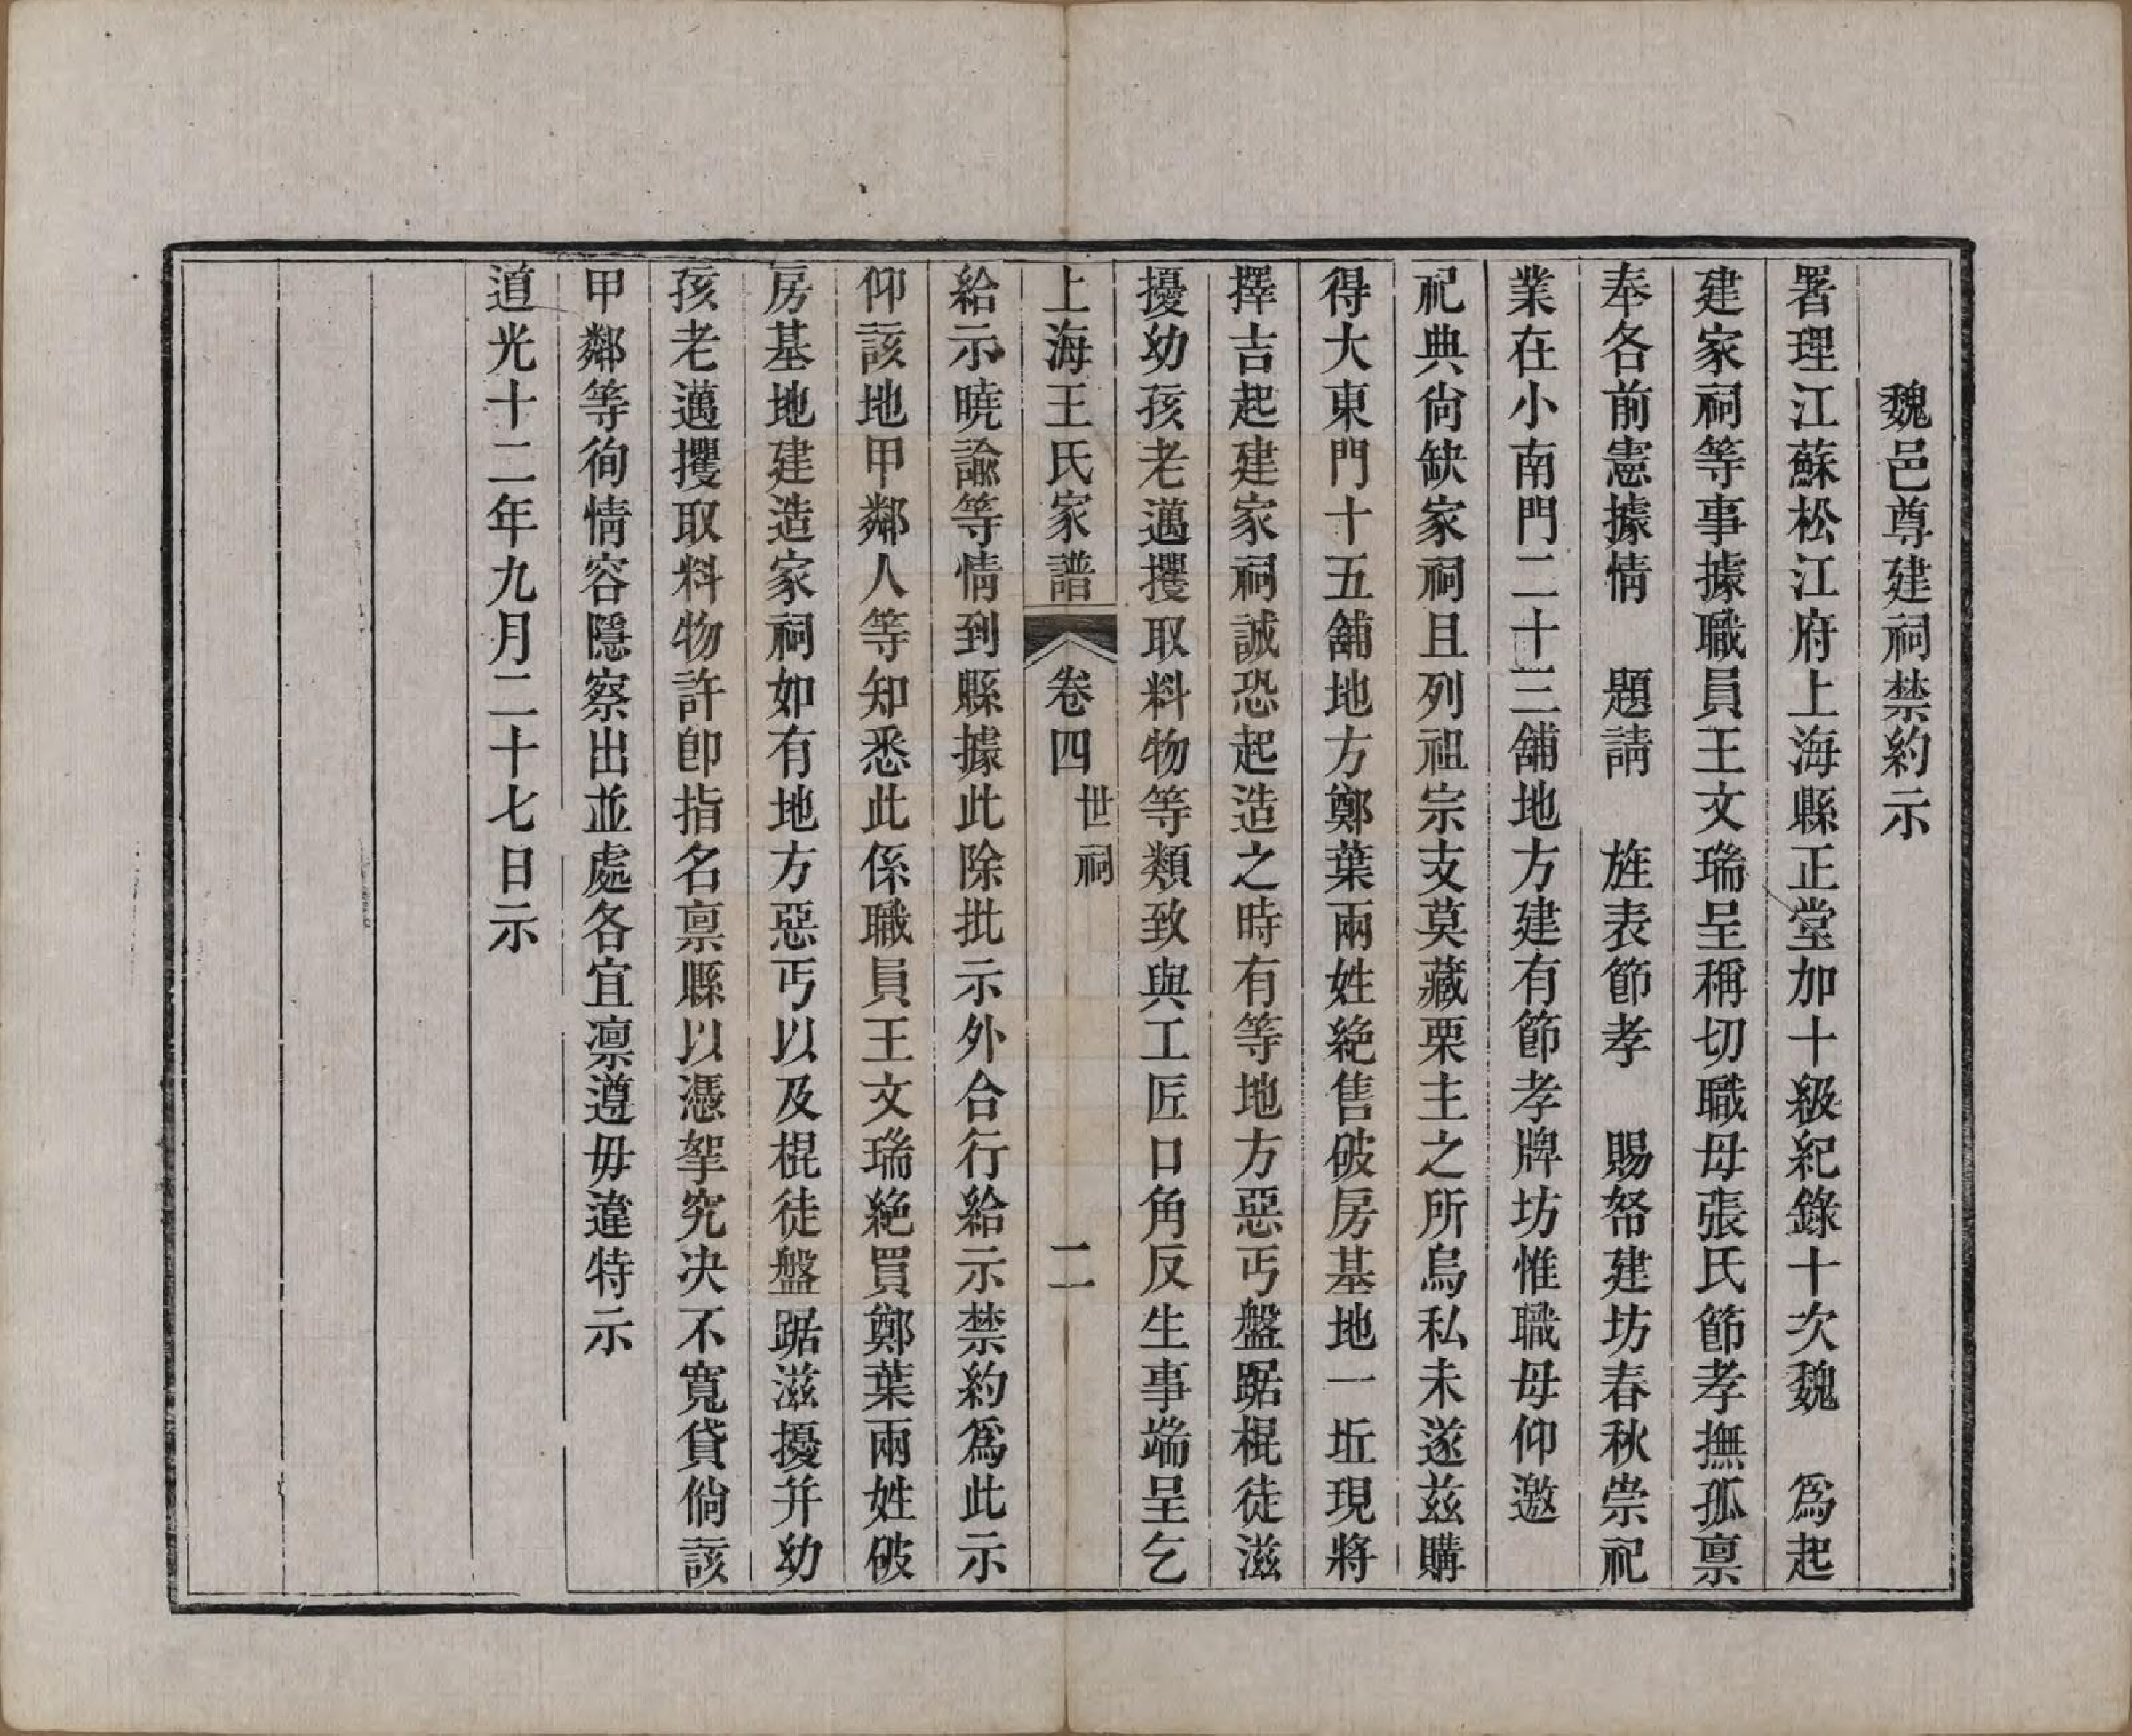 魏邑尊建祠禁約示
署理江蘇松江府上海縣正堂加十級紀錄十次魏　為起
建家祠等事據職員王文瑞呈稱切職母張氏節孝撫孤稟
奉各前憲據情　題請　旌表節孝　賜帑建坊春秋崇祀
業在小南門二十三舖地方建有節孝牌坊惟職母仰邀
祀典尙缺家祠且列祖宗支莫藏栗主之所烏私未遂茲購
得大東門十五舖地方鄭葉兩姓絕售破房基地一坵現將
擇吉起建家祠誠恐起造之時有等地方惡丐盤踞棍徒滋
擾幼孩老邁攫取料物等類致與工匠口角反生事端呈乞
上海王氏家譜　卷四　世祠　二
給示曉諭等情到縣據此除批示外合行給示禁約爲此示
仰該地甲鄰人等知悉此係職員王文瑞絕買鄭葉兩姓破
房基地建造家祠如有地方惡丐以及棍徒盤踞滋擾并幼
孩老邁攫取料物許卽指名稟縣以憑拏究決不寬貸倘該
甲鄰等徇情容隱察出並處各宜凛遵毋違特示
道光十二年九月二十七日示